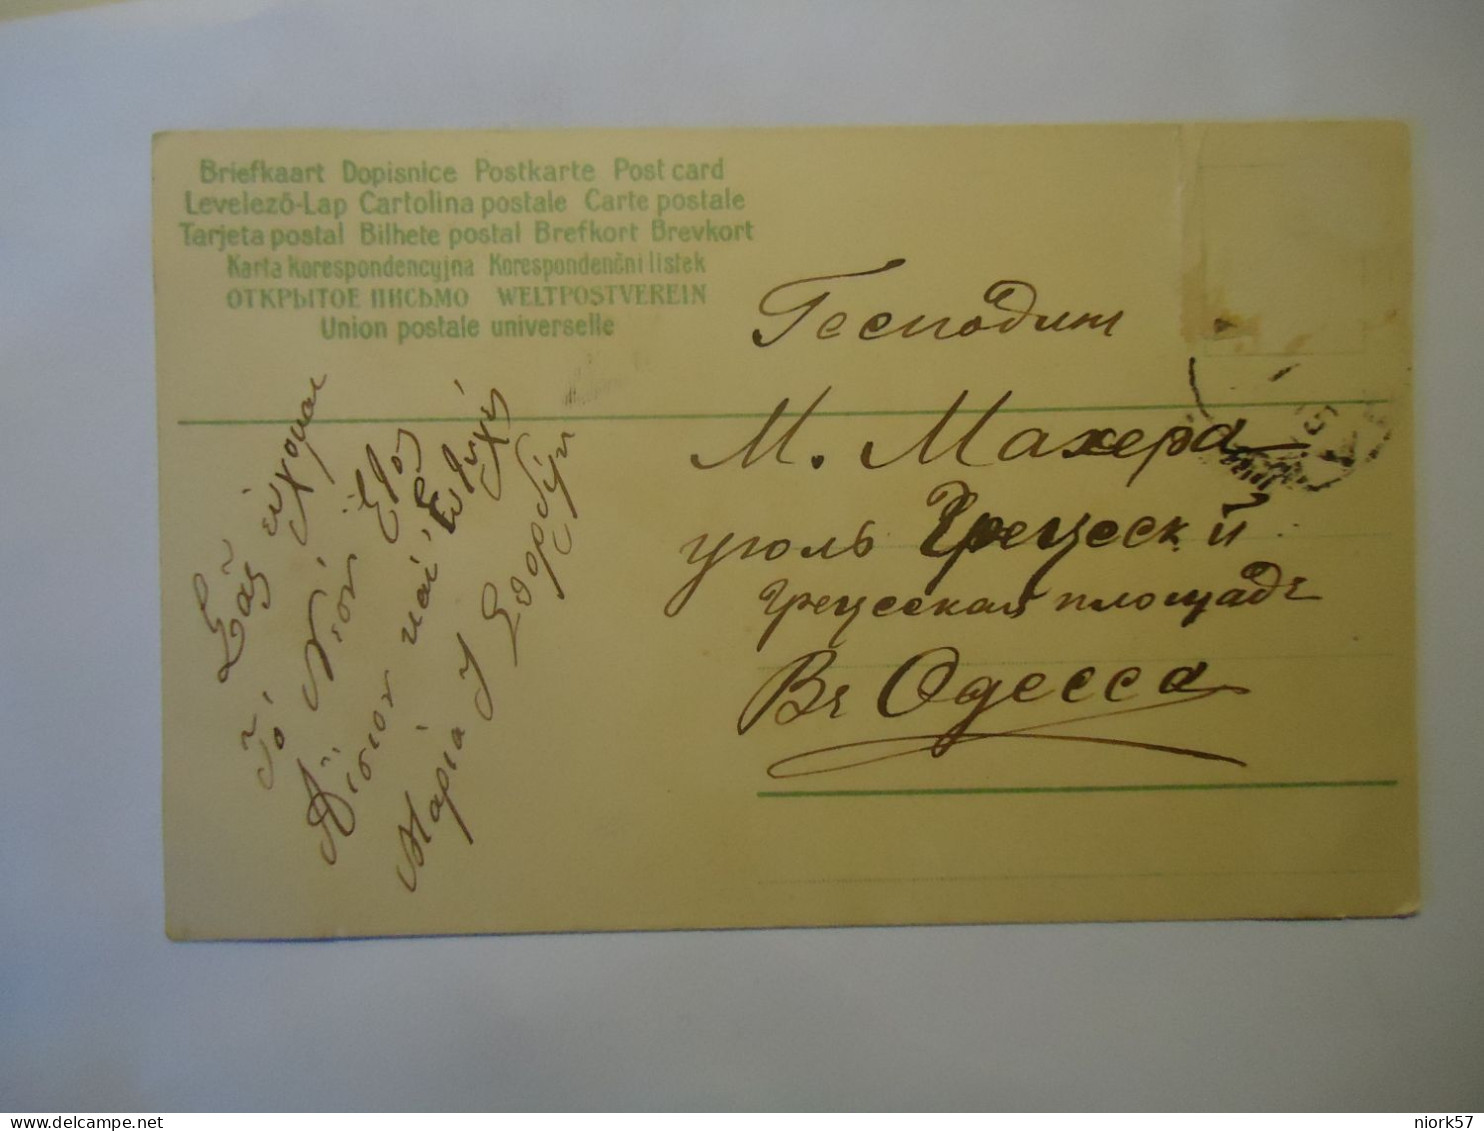 Briefkaart Dopisnice Postkarte Post card
Levelező-Lap Cartolina postale Carte postale
Tarjeta postal Bilhete postal Brefkort Brevkort
Karta korespondencyjna Korespondenčni listek
ОТКРЫТОЕ ПИСЬМО WELTPOSTVEREIN
Union postale universelle
Σᾶς εὐχομαι
τό Νέον Ἔτος
Αἴσιον καί Εὐτυχές
Μαρία
Господин
М. Махера
уголъ Греческ й
Греческая площадъ
Въ Одесса
niork57